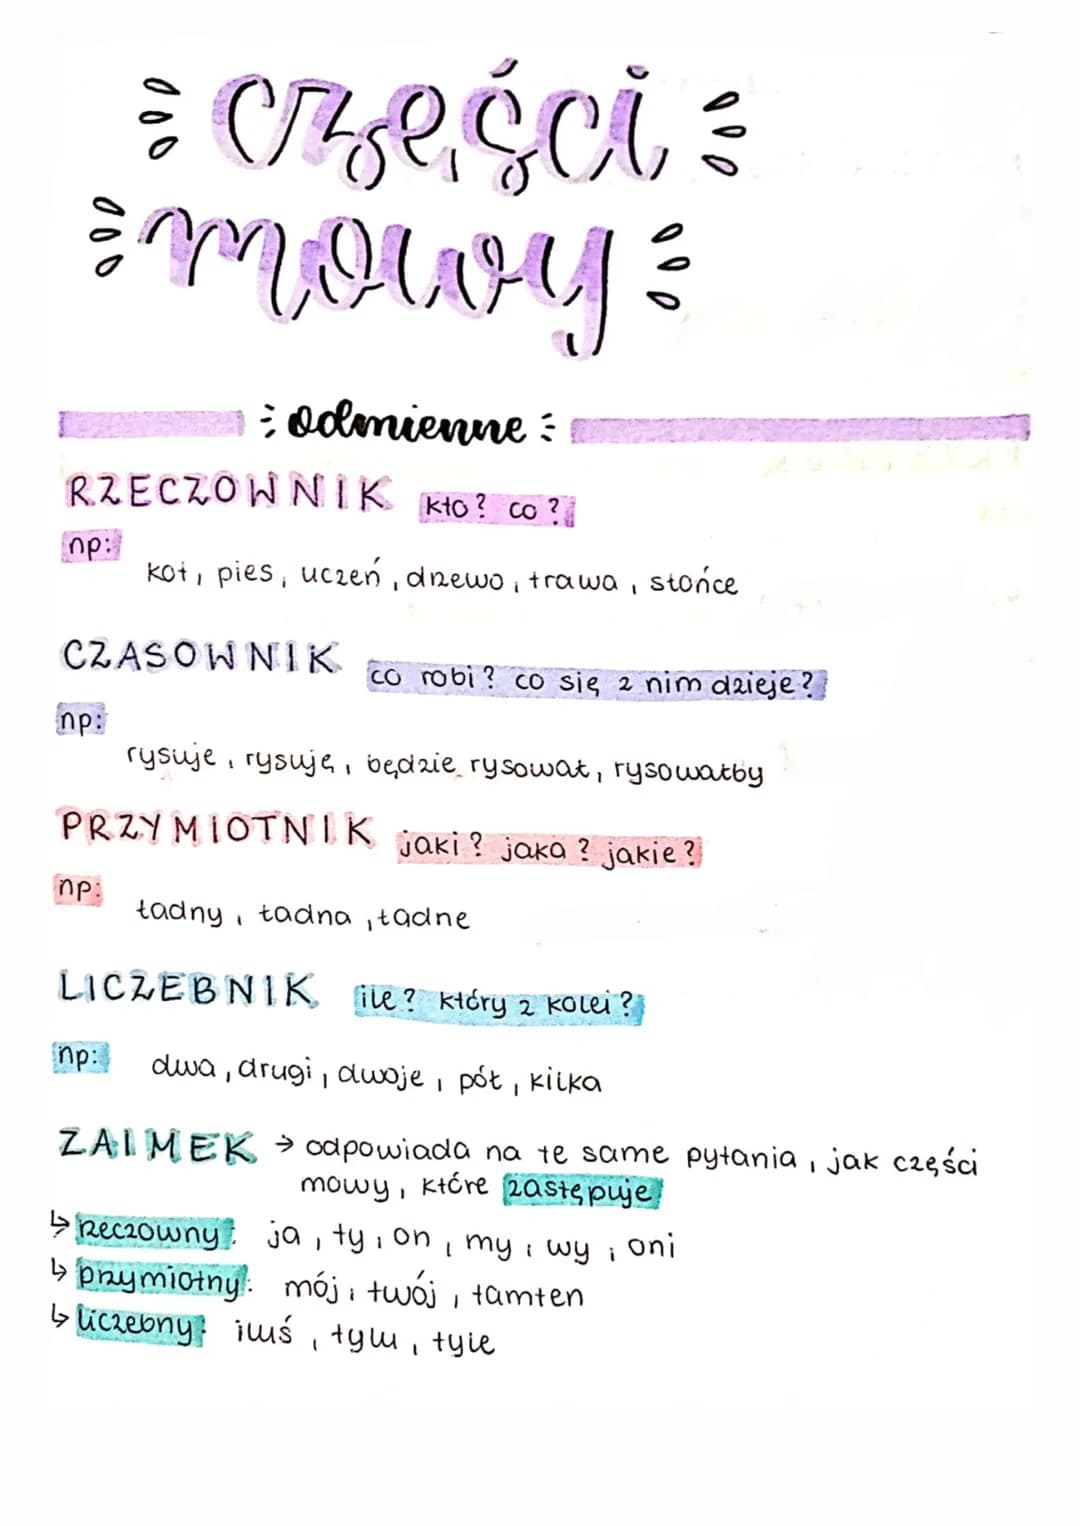 części
mowy
odmienne
RZECZOWNIK kto? co?
np:
kot, pies, uczeń, drzewo, trawa, słońce
CZASOWNIK co robi? co się z nim dzieje?
np:
rysuje, rysuję, będzie rysował, rysowałby
PRZYMIOTNIK jaki? jaka? jakie?
np:
ładny, ładna, ładne
LICZEBNIK ile? który z kolei?
np: dwa, drugi, dwoje, pół, kilka
ZAIMEK → odpowiada na te same pytania, jak części
mowy, które zastępuje
↳ rzeczowny: ja, ty, on, my, wy, oni
↳ przymiotny: mój, twój, tamten
↳ liczebny: iluś, tylu, tyle